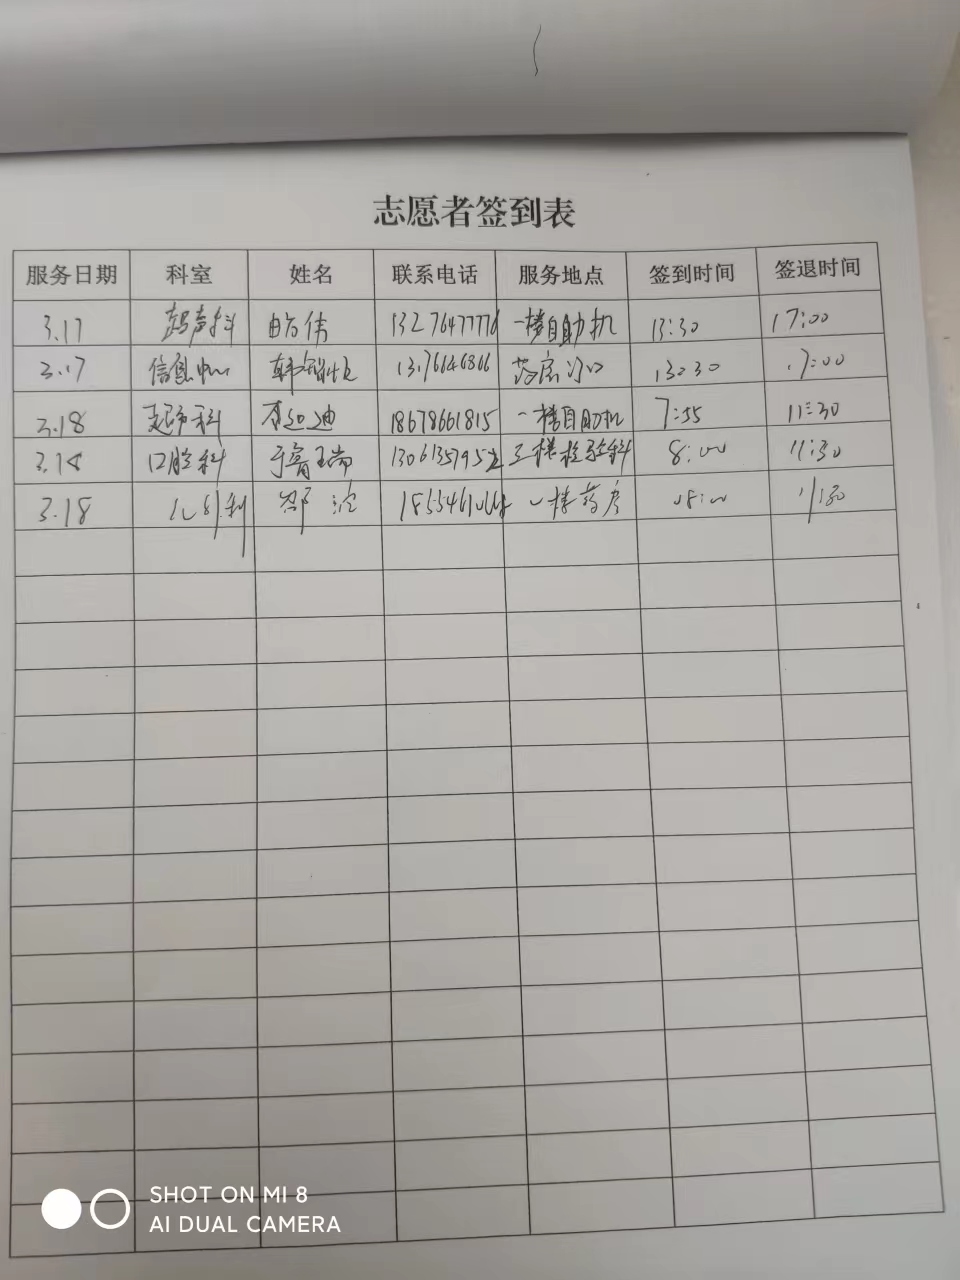 志愿者签到表
服务日期 科室 姓名 联系电话 服务地点 签到时间 签退时间
3.17 超声科 伟 一楼自助机 13:30 17:00
3.17 信息中心 韩 药房门口 13:30 17:00
3.18 超声科 迪 18678661815 一楼自助机 7:55 11:30
3.18 口腔科 于 三楼检验科 8:00 11:30
3.18 邹 一楼药房 08:00 11:30
SHOT ON MI 8
AI DUAL CAMERA